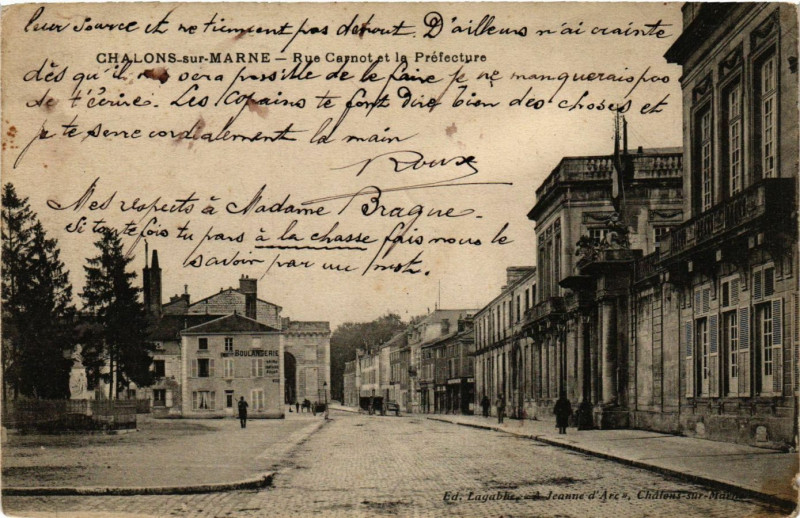 leur source et ne tiennent pas debout. D'ailleurs n'ai crainte
CHALONS-sur-MARNE – Rue Carnot et la Préfecture
dès qu'il me sera possible de le faire je ne manquerais pas
de t'écrire. Les Copains te font dire bien des choses et
je te serre cordialement la main
Roux
Mes respects à Madame Braque.
Si toutefois tu pars à la chasse fais nous le
savoir par un mot.
BOULANGERIE
Ed. Lagabbe, « A Jeanne d'Arc », Châlons-sur-Marne